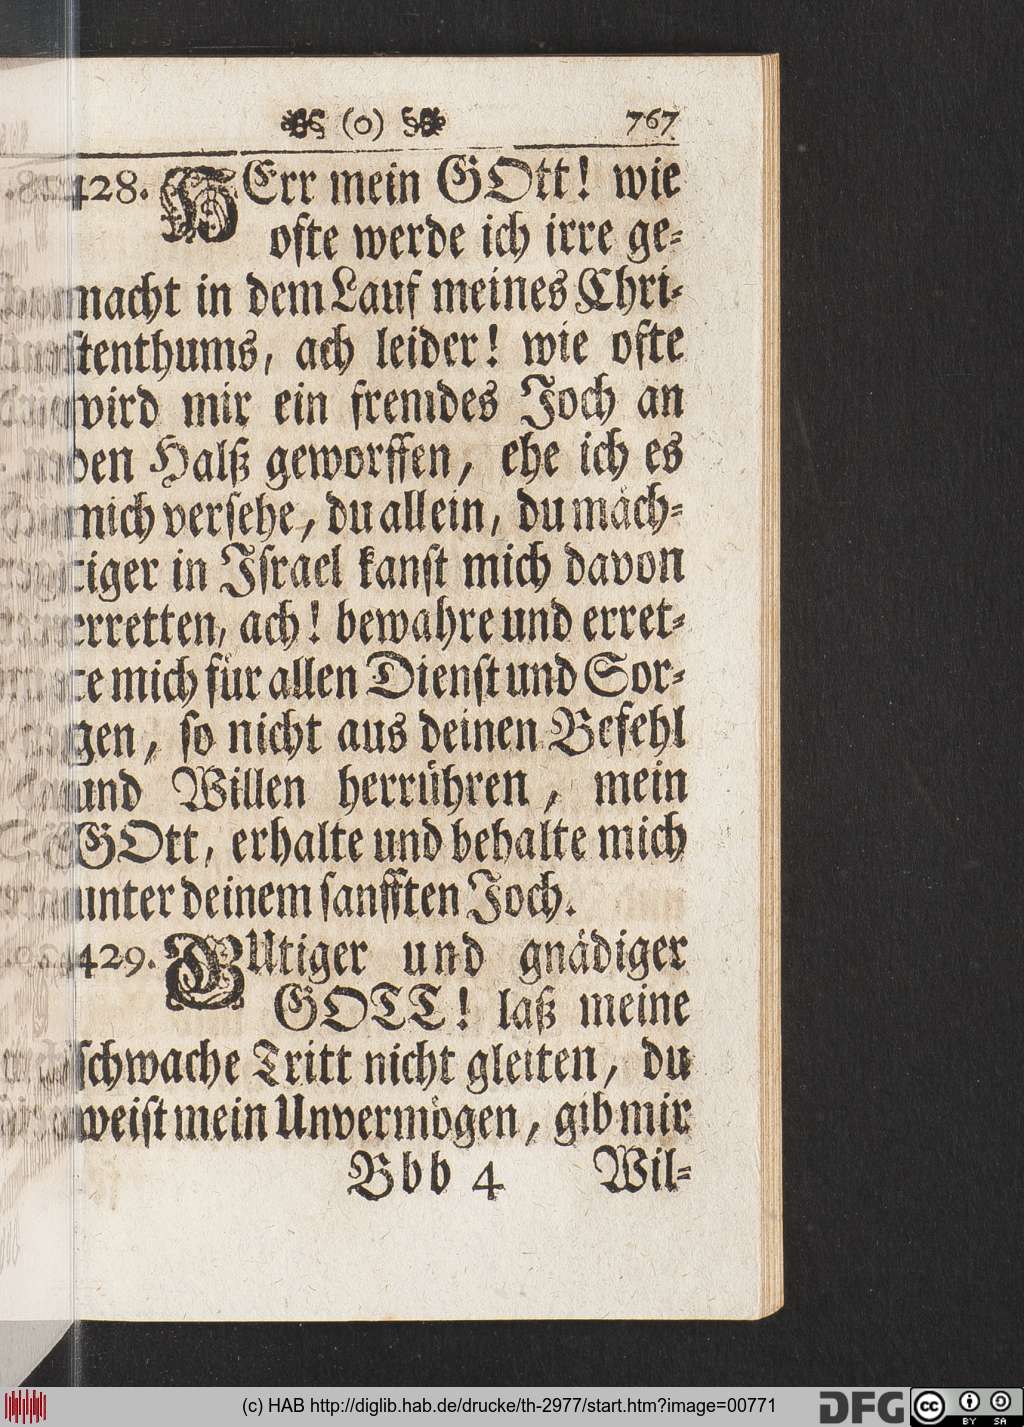 (o) 767
428. HErr mein GOtt! wie
ofte werde ich irre ge-
macht in dem Lauf meines Chri-
stenthums, ach leider! wie ofte
wird mir ein fremdes Joch an
den Halß geworffen, ehe ich es
mich versehe, du allein, du mäch-
tiger in Israel kanst mich davon
erretten, ach! bewahre und erret-
te mich für allen Dienst und Sor-
gen, so nicht aus deinen Befehl
und Willen herrühren, mein
GOtt, erhalte und behalte mich
unter deinem sanfften Joch.
429. GUtiger und gnädiger
GOTT! laß meine
schwache Tritt nicht gleiten, du
weist mein Unvermögen, gib mir
Bbb 4 Wil-
(c) HAB http://diglib.hab.de/drucke/th-2977/start.htm?image=00771
DFG cc BY SA